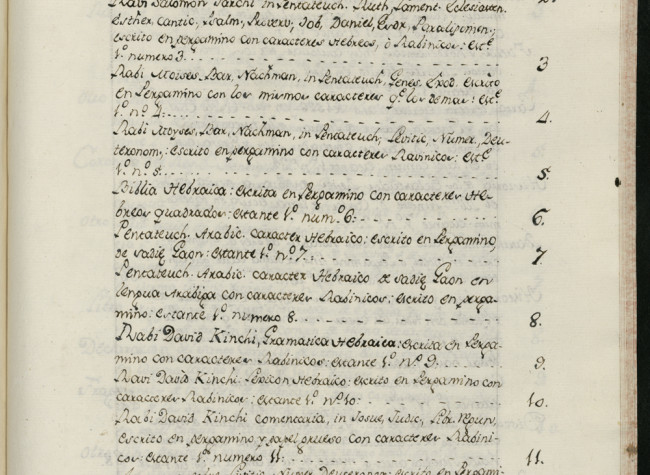 Ravi Salomon Jarchi in Pentateuch. Ruth, Lament. Eclesiasten.
Esther, Cantic, Psalm, Proverv, Job, Daniel, Esdr, Paralipomen,
escrito en pergamino con caracteres Hebreos, ò Rabinicos: Est.e
1.º numero 3. 3
Rabi Moises Bar, Nachman, in Pentateuch, Genes. Exod. escrito
en Pergamino con los mismos caracteres q.e los demas: Est.e
1.º n.º 4. 4.
Rabi Moyses, Bar, Nachman, in Pentateuch, Levitic, Numer, Deu-
teronom,: escrito en pergamino con caracteres Ravinicos: est.e
1.º n.º 5. 5.
Biblia Hebraica: escrita en Pergamino con caracteres He-
breos quadrados: estante 1.º num.º 6: 6.
Pentateuch. Arabic. caracter Hebraico: escrito en Pergamino,
de Sadię Gaon: estante 1.º n.º 7.: 7.
Pentateuch. Arabic. caracter Hebraico de Sadię Gaon en
lengua Arabiga con caracteres Rabinicos: escrito en perga-
mino: estante 1.º numero 8. 8.
Rabi David Kinchi, Gramatica Hebraica: escrita en Perga-
mino con caracteres Rabinicos: estante 1.º n.º 9. 9.
Ravi David Kinchi. Lexicon Hebraico: escrito en Pergamino con
caracteres Rabinicos: estante 1.º n.º 10: 10.
Rabi David Kinchi comentaria, in Josue, Judic,
escrito en pergamino y papel grueso con caracteres Rabini-
cos: estante 1.º numero 11: 11.